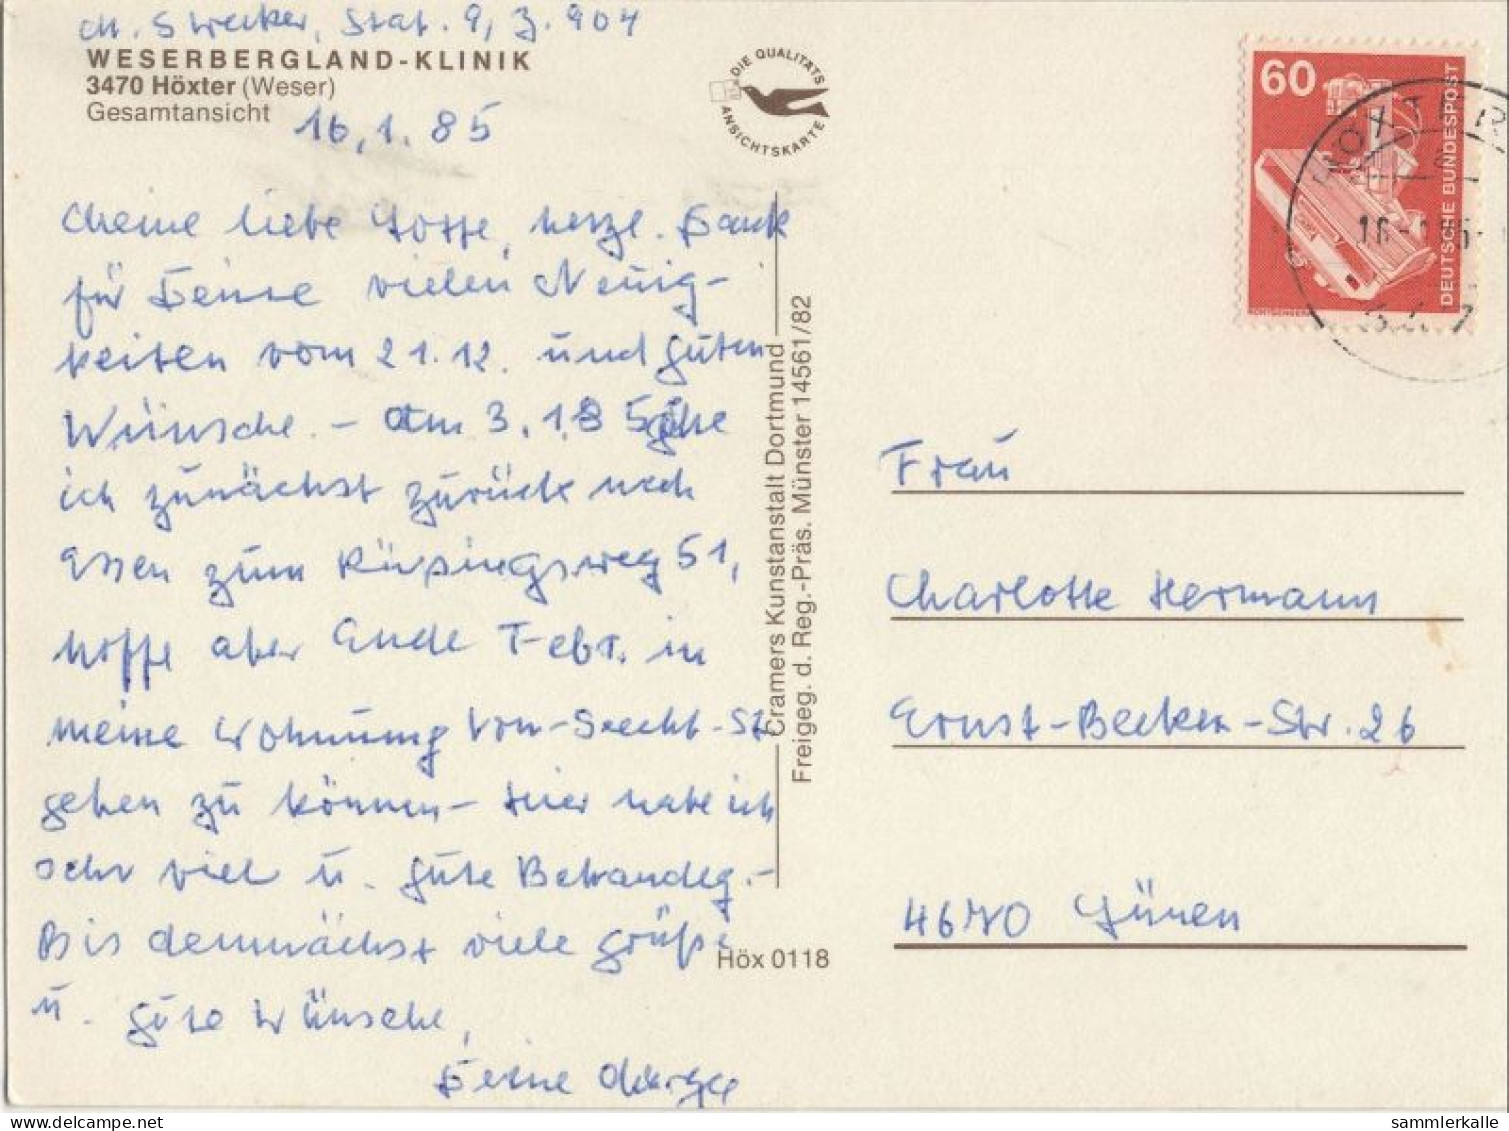 M. Strecker, Stat. 9, Z. 904
WESERBERGLAND-KLINIK
3470 Höxter (Weser)
Gesamtansicht
16.1.85
DIE QUALITÄTS
ANSICHTSKARTE
Meine liebe Lotte, herzl. Dank
für Deine vielen Neuig-
keiten vom 21.12. und guten
Wünsche. - Am 3.1.85 gehe
ich zunächst zurück nach
Essen zum Rüpingsweg 51,
hoffe aber Ende Febr. in
meine Wohnung Von-Seeckt-St.
gehen zu können - Hier habe ich
sehr viel u. gute Behandlg. -
Bis demnächst viele Grüße
u. gute Wünsche,
Deine
Cramers Kunstanstalt Dortmund
Freigeg. d. Reg.-Präs. Münster 14561/82
Höx 0118
60
DEUTSCHE BUNDESPOST
HÖXTER
Frau
Charlotte Hermann
Ernst-Becker-Str. 26
4670 Lünen
sammlerkalle